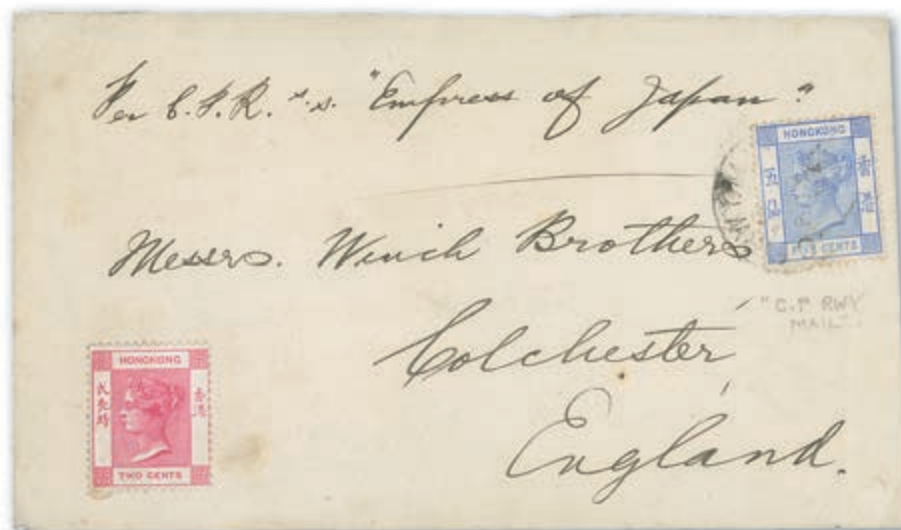 Per C.P.R. s.s. "Empress of Japan"
HONGKONG
香港
五仙
FIVE CENTS
Messrs. Winch Brothers
"C.P RWY
MAIL".
Colchester
England.
HONGKONG
香港
TWO CENTS